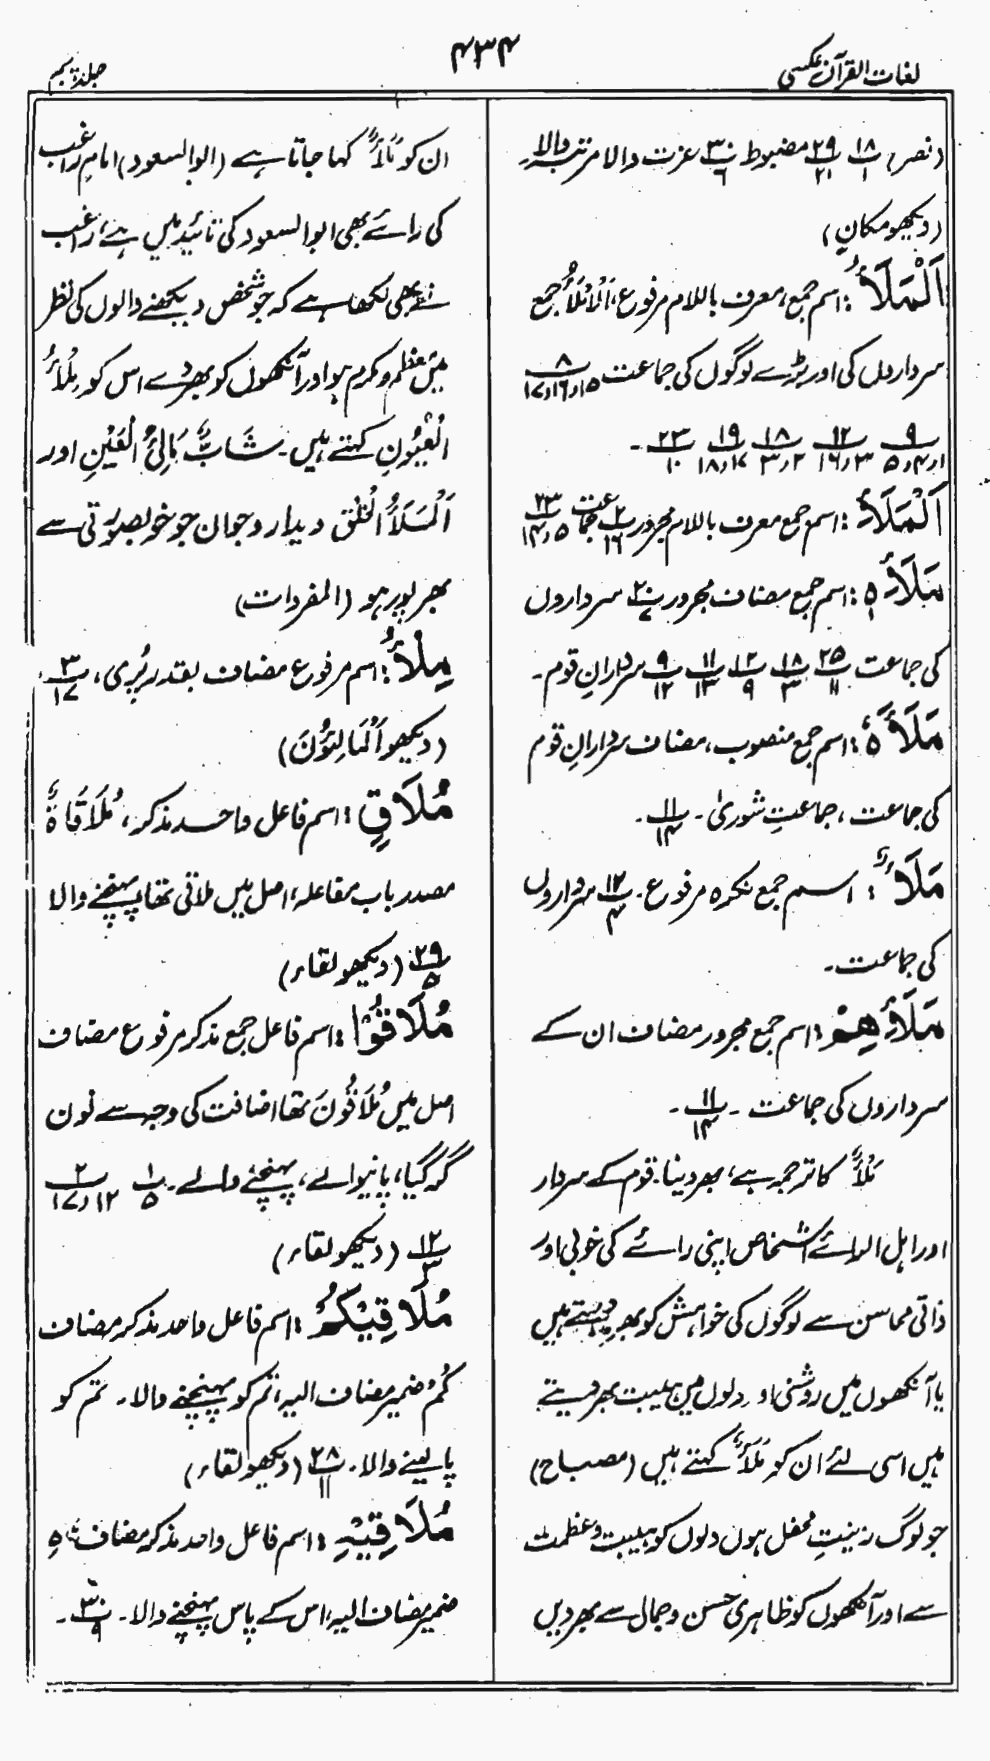 لغات القرآن عکسی
۴۳۴
جلد پنجم
(نصر) ۱۸/۱ ۲۹/۲۱ مضبوط ۳۰/۶ عزت والا مرتبہ والا۔
(دیکھو مکانٍ)
اَلْمَلَأُ: اسم جمع، معرف باللام مرفوع، اَلْاَمْلَأُ جمع
سرداروں کی اور بڑے لوگوں کی جماعت ۸/۱۵و۱۶و۱۷
۹/۱و۴و۵ ۱۲/۳و۱۶ ۱۸/۲و۳ ۱۹/۷و۱۸ ۲۳/۱۰۔
اَلْمَلَأِ: اسم جمع معرف باللام مجرور ۲/۱۶ جماعت ۲۳/۵و۱۴
مَلَأِہٖ: اسم جمع مضاف مجرور ۲۰/۷ سرداروں
کی جماعت ۲۵/۱۱ ۱۸/۳ ۱۲/۹ ۱۱/۱۳ ۹/۱۲ سردارانِ قوم۔
مَلَأَہٗ: اسم جمع منصوب، مضاف سردارانِ قوم
کی جماعت، جماعتِ شوریٰ۔ ۱۱/۱۴۔
مَلَأٌ: اسم جمع نکرہ مرفوع۔ ۱۲/۴ سرداروں
کی جماعت۔
مَلَأِهِمْ: اسم جمع مجرور مضاف ان کے
سرداروں کی جماعت۔ ۱۱/۱۴۔
مَلْأٌ کا ترجمہ ہے، بھر دینا۔ قوم کے سردار
اور اہل الرائے اشخاص اپنی رائے کی خوبی اور
ذاتی محاسن سے لوگوں کی خواہش کو بھر دیتے ہیں
یا آنکھوں میں روشنی اور دلوں میں ہیبت بھر دیتے
ہیں اسی لئے ان کو مَلَأٌ کہتے ہیں (مصباح)
جو لوگ زینتِ محفل ہوں دلوں کو ہیبت و عظمت
سے اور آنکھوں کو ظاہری حسن و جمال سے بھر دیں
ان کو مَلَأٌ کہا جاتا ہے (ابوالسعود) امام راغب
کی رائے بھی ابوالسعود کی تائید میں ہے، راغب
نے بھی لکھا ہے کہ جو شخص دیکھنے والوں کی نظر
میں معظم و مکرم ہو اور آنکھوں کو بھر دے اس کو مِلْأُ
الْعُیُوْنِ کہتے ہیں۔ شَابٌّ مَالِئُ الْعَیْنِ اور
اَلْمَلَأُ الْخَلْق دیدار و جوان جو خوبصورتی سے
بھرپور ہو (المفردات)
مِلْأُ: اسم مرفوع مضاف بقدر پُری، ۳/۱۷۔
(دیکھو اَلْمَالِئُوْنَ)
مُلَاقٍ: اسم فاعل واحد مذکر، مُلَاقَاةٌ
مصدر باب مفاعلہ، اصل میں ملاقی تھا پہنچنے والا
۲۹/۵ (دیکھو لقاء)
مُلَاقُوْا: اسم فاعل جمع مذکر مرفوع مضاف
اصل میں مُلَاقُوْنَ تھا اضافت کی وجہ سے نون
گر گیا، پانیوالے، پہنچنے والے۔ ۱/۵ ۲/۱۲و۱۷
۱۲/۳ (دیکھو لقاء)
مُلَاقِیْکُمْ: اسم فاعل واحد مذکر مضاف
کُمْ ضمیر مضاف الیہ، تم کو پہنچنے والا۔ تم کو
پا لینے والا۔ ۲۸/۱۱ (دیکھو لقاء)
مُلَاقِیْہِ: اسم فاعل واحد مذکر مضاف، ہِ
ضمیر مضاف الیہ، اس کے پاس پہنچنے والا۔ ۳۰/۹۔